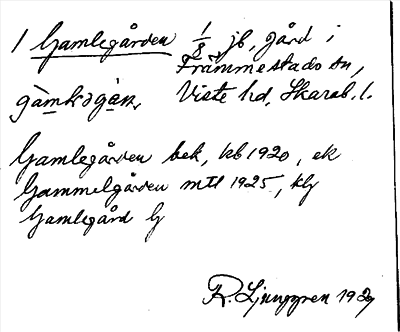 1 Gamlegården 1/8 jb, gård i
Främmestads sn,
Viste hd, Skarab. l.
Gamlegården bek, kb 1920, ek
Gammelgården mtl 1925, klg
Gamlegård G
R. Ljunggren 1927